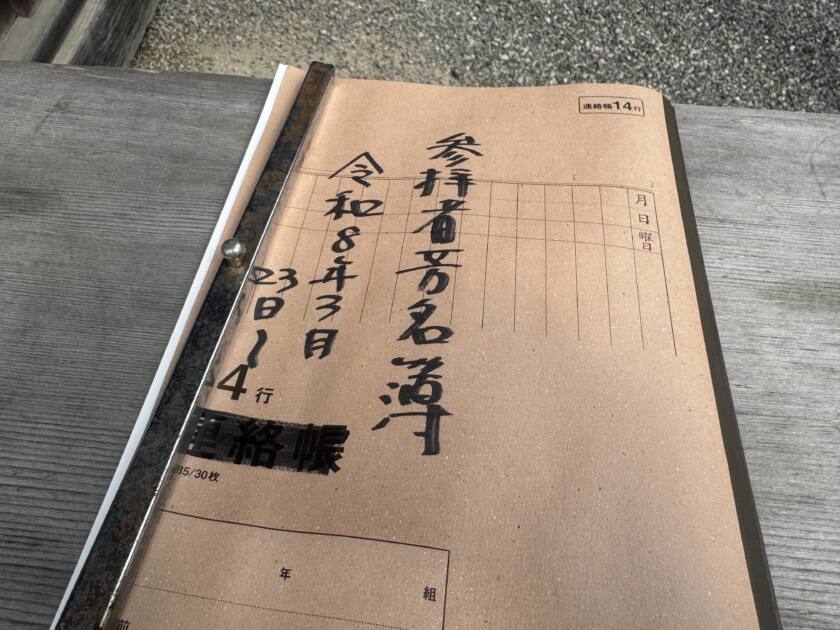 連絡帳14行
月日曜日
参拝者芳名簿
令和8年3月
23日〜
14行
連絡帳
35/30枚
年 組
前